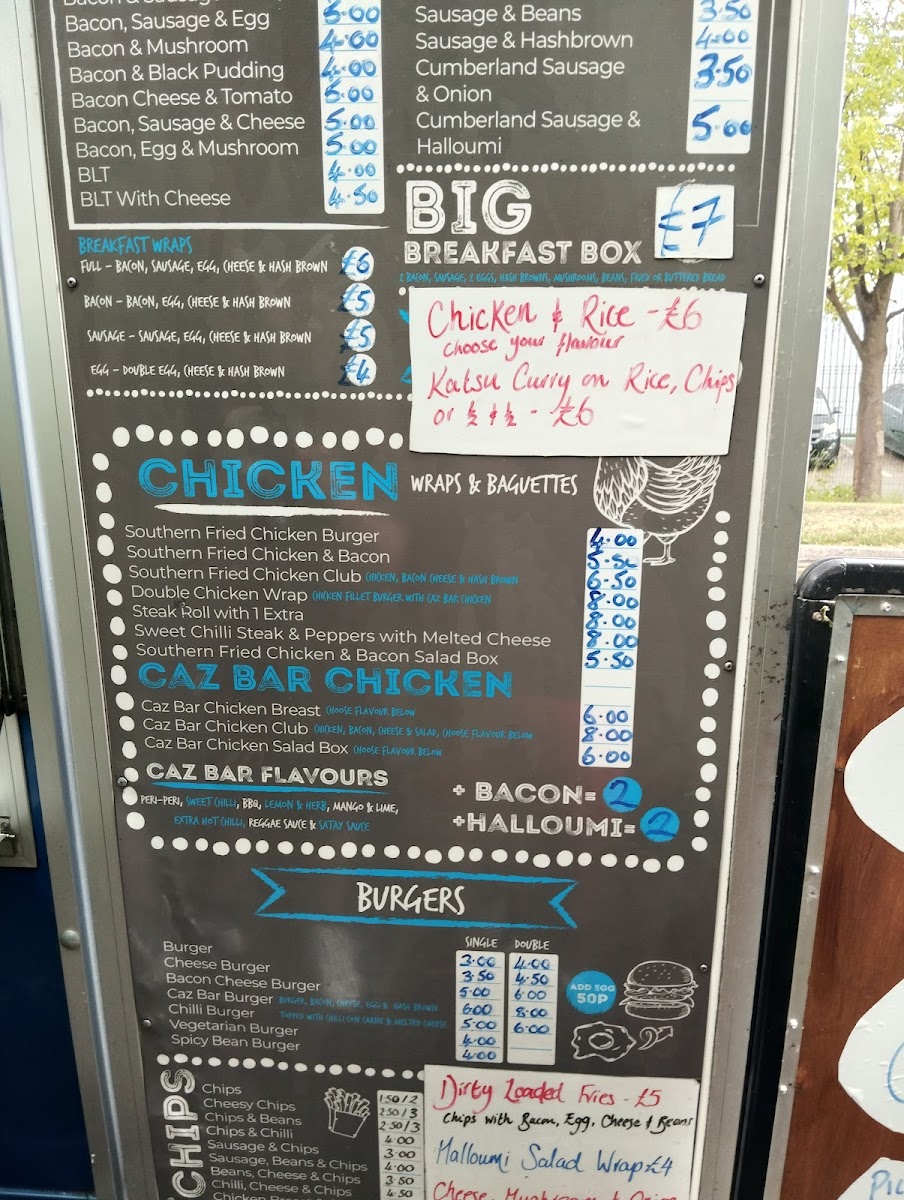 Bacon & Sausage
Bacon, Sausage & Egg 5.00
Bacon & Mushroom 4.00
Bacon & Black Pudding 4.00
Bacon Cheese & Tomato 5.00
Bacon, Sausage & Cheese 5.00
Bacon, Egg & Mushroom 5.00
BLT 4.00
BLT With Cheese 4.50
Sausage & Beans 3.50
Sausage & Hashbrown 4.00
Cumberland Sausage 3.50
& Onion
Cumberland Sausage & 5.00
Halloumi
BREAKFAST WRAPS
FULL – BACON, SAUSAGE, EGG, CHEESE & HASH BROWN £6
BACON – BACON, EGG, CHEESE & HASH BROWN £5
SAUSAGE – SAUSAGE, EGG, CHEESE & HASH BROWN £5
EGG – DOUBLE EGG, CHEESE & HASH BROWN £4
BIG
BREAKFAST BOX £7
2 BACON, SAUSAGE, 2 EGGS, HASH BROWNS, MUSHROOMS, BEANS, FRIED OR BUTTERED BREAD
Chicken & Rice - £6
choose your flavour
Katsu Curry on Rice, Chips
or ½ & ½ - £6
CHICKEN WRAPS & BAGUETTES
Southern Fried Chicken Burger 4.00
Southern Fried Chicken & Bacon 5.50
Southern Fried Chicken Club CHICKEN, BACON CHEESE & HASH BROWN 6.50
Double Chicken Wrap CHICKEN FILLET BURGER WITH CAZ BAR CHICKEN 8.00
Steak Roll with 1 Extra 8.00
Sweet Chilli Steak & Peppers with Melted Cheese 8.00
Southern Fried Chicken & Bacon Salad Box 5.50
CAZ BAR CHICKEN
Caz Bar Chicken Breast CHOOSE FLAVOUR BELOW 6.00
Caz Bar Chicken Club CHICKEN, BACON, CHEESE & SALAD, CHOOSE FLAVOUR BELOW 8.00
Caz Bar Chicken Salad Box CHOOSE FLAVOUR BELOW 6.00
CAZ BAR FLAVOURS
PERI-PERI, SWEET CHILLI, BBQ, LEMON & HERB, MANGO & LIME,
EXTRA HOT CHILLI, REGGAE SAUCE & SATAY SAUCE
+ BACON= 2
+HALLOUMI= 2
BURGERS
SINGLE DOUBLE
Burger 3.00 4.00
Cheese Burger 3.50 4.50
Bacon Cheese Burger 5.00 6.00
Caz Bar Burger BURGER, BACON, CHEESE, EGG & HASH BROWN 6.00 8.00
Chilli Burger TOPPED WITH CHILLI CON CARNE & MELTED CHEESE 5.00 6.00
Vegetarian Burger 4.00
Spicy Bean Burger 4.00
ADD EGG
50P
CHIPS
Chips 1.50/2
Cheesy Chips 2.50/3
Chips & Beans 2.50/3
Chips & Chilli 4.00
Sausage & Chips 3.00
Sausage, Beans & Chips 4.00
Beans, Cheese & Chips 3.50
Chilli, Cheese & Chips 4.50
Dirty Loaded Fries - £5
Chips with Bacon, Egg, Cheese & Beans
Halloumi Salad Wrap £4